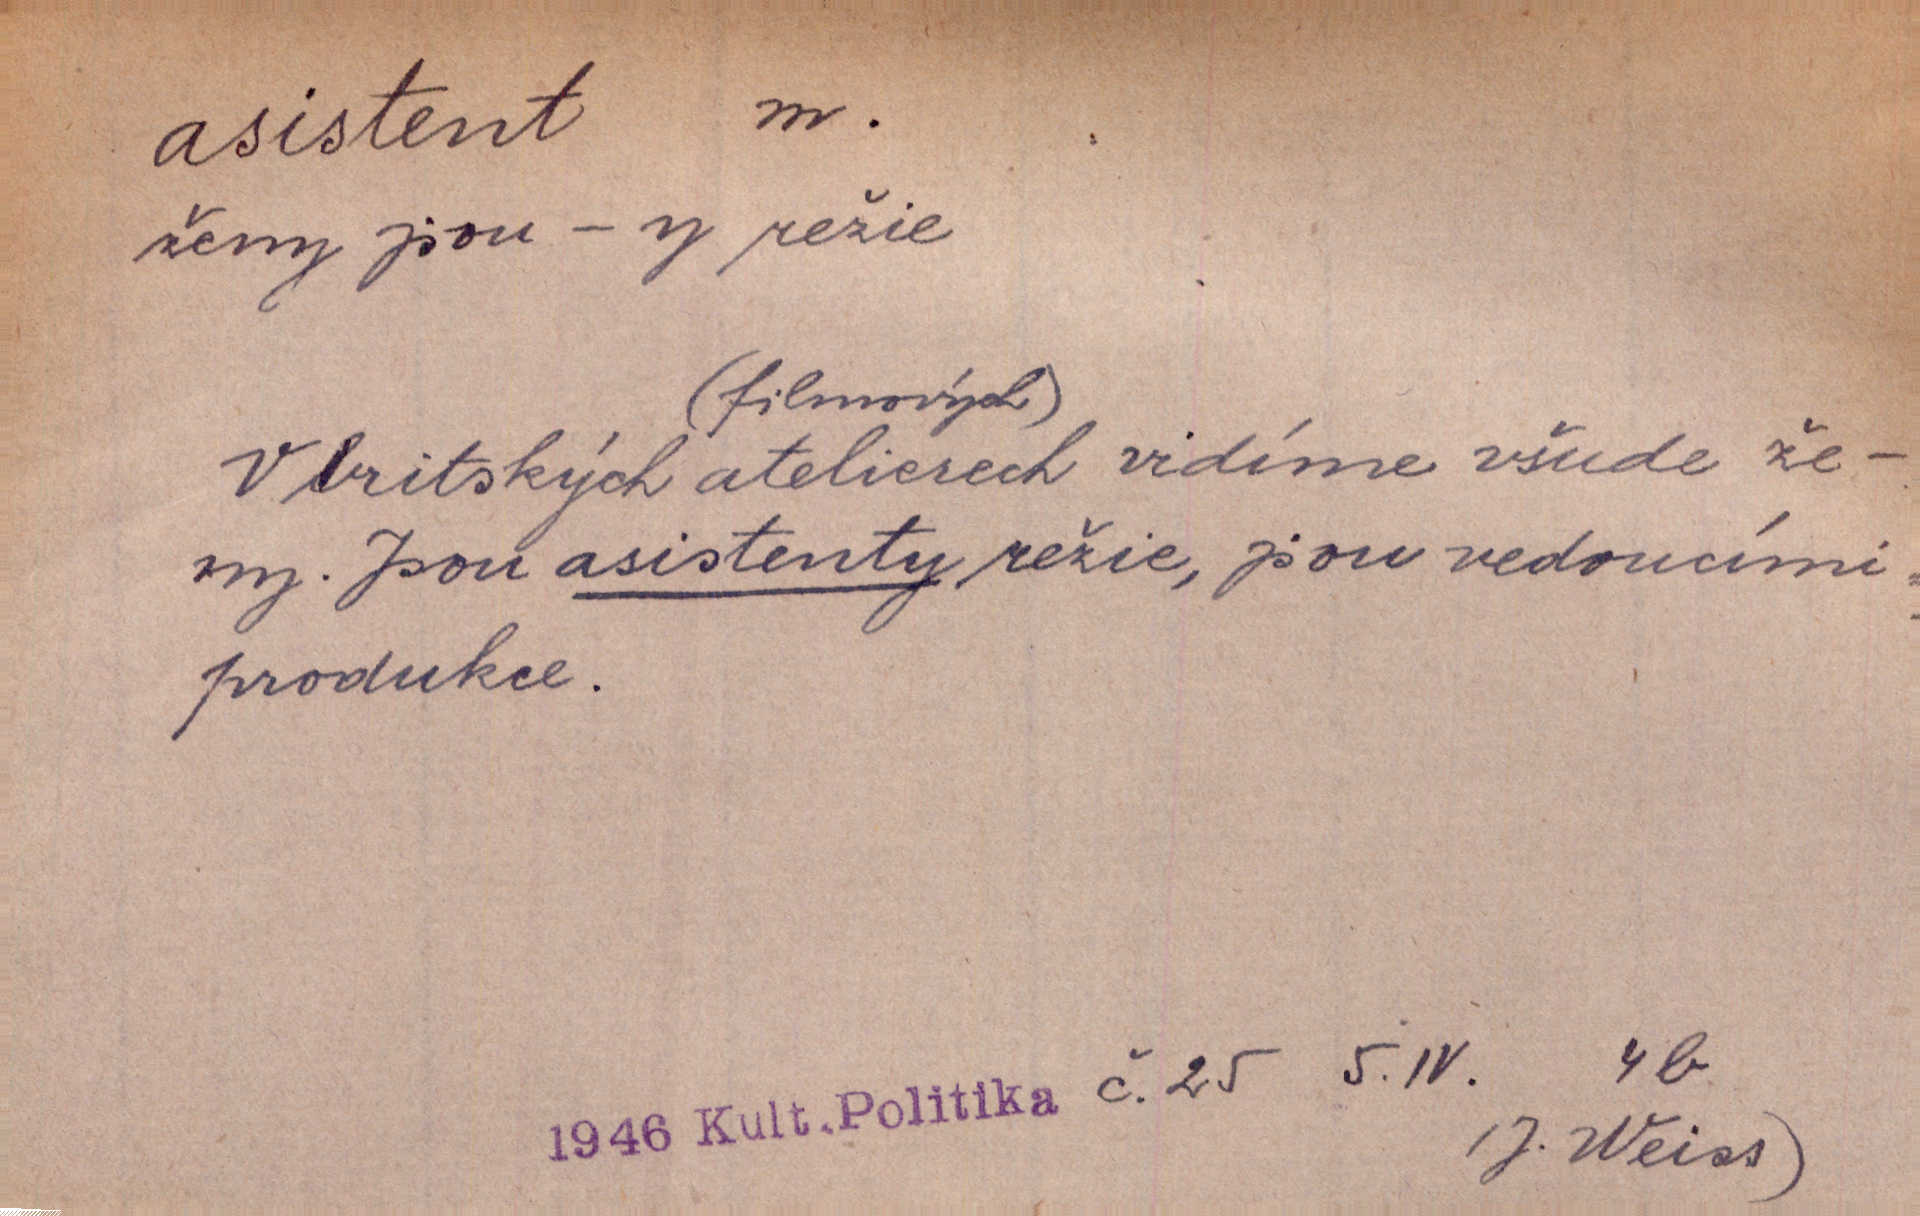 asistent m.
ženy jsou -y režie
(filmových)
V britských atelierech vidíme všude že-
ny. Jsou asistenty režie, jsou vedoucími
produkce.
1946 Kult. Politika č. 25 5. IV. 4 b
(J. Weiss)